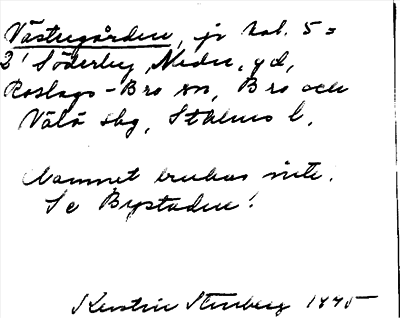 Västergården, jr kol. 5 =
2' Söderby, Nedre, gd,
Roslags-Bro sn, Bro och
Vätö skg, Sthlms l.
Namnet brukas inte.
Se Bystaden!
Kerstin Stenberg 1945